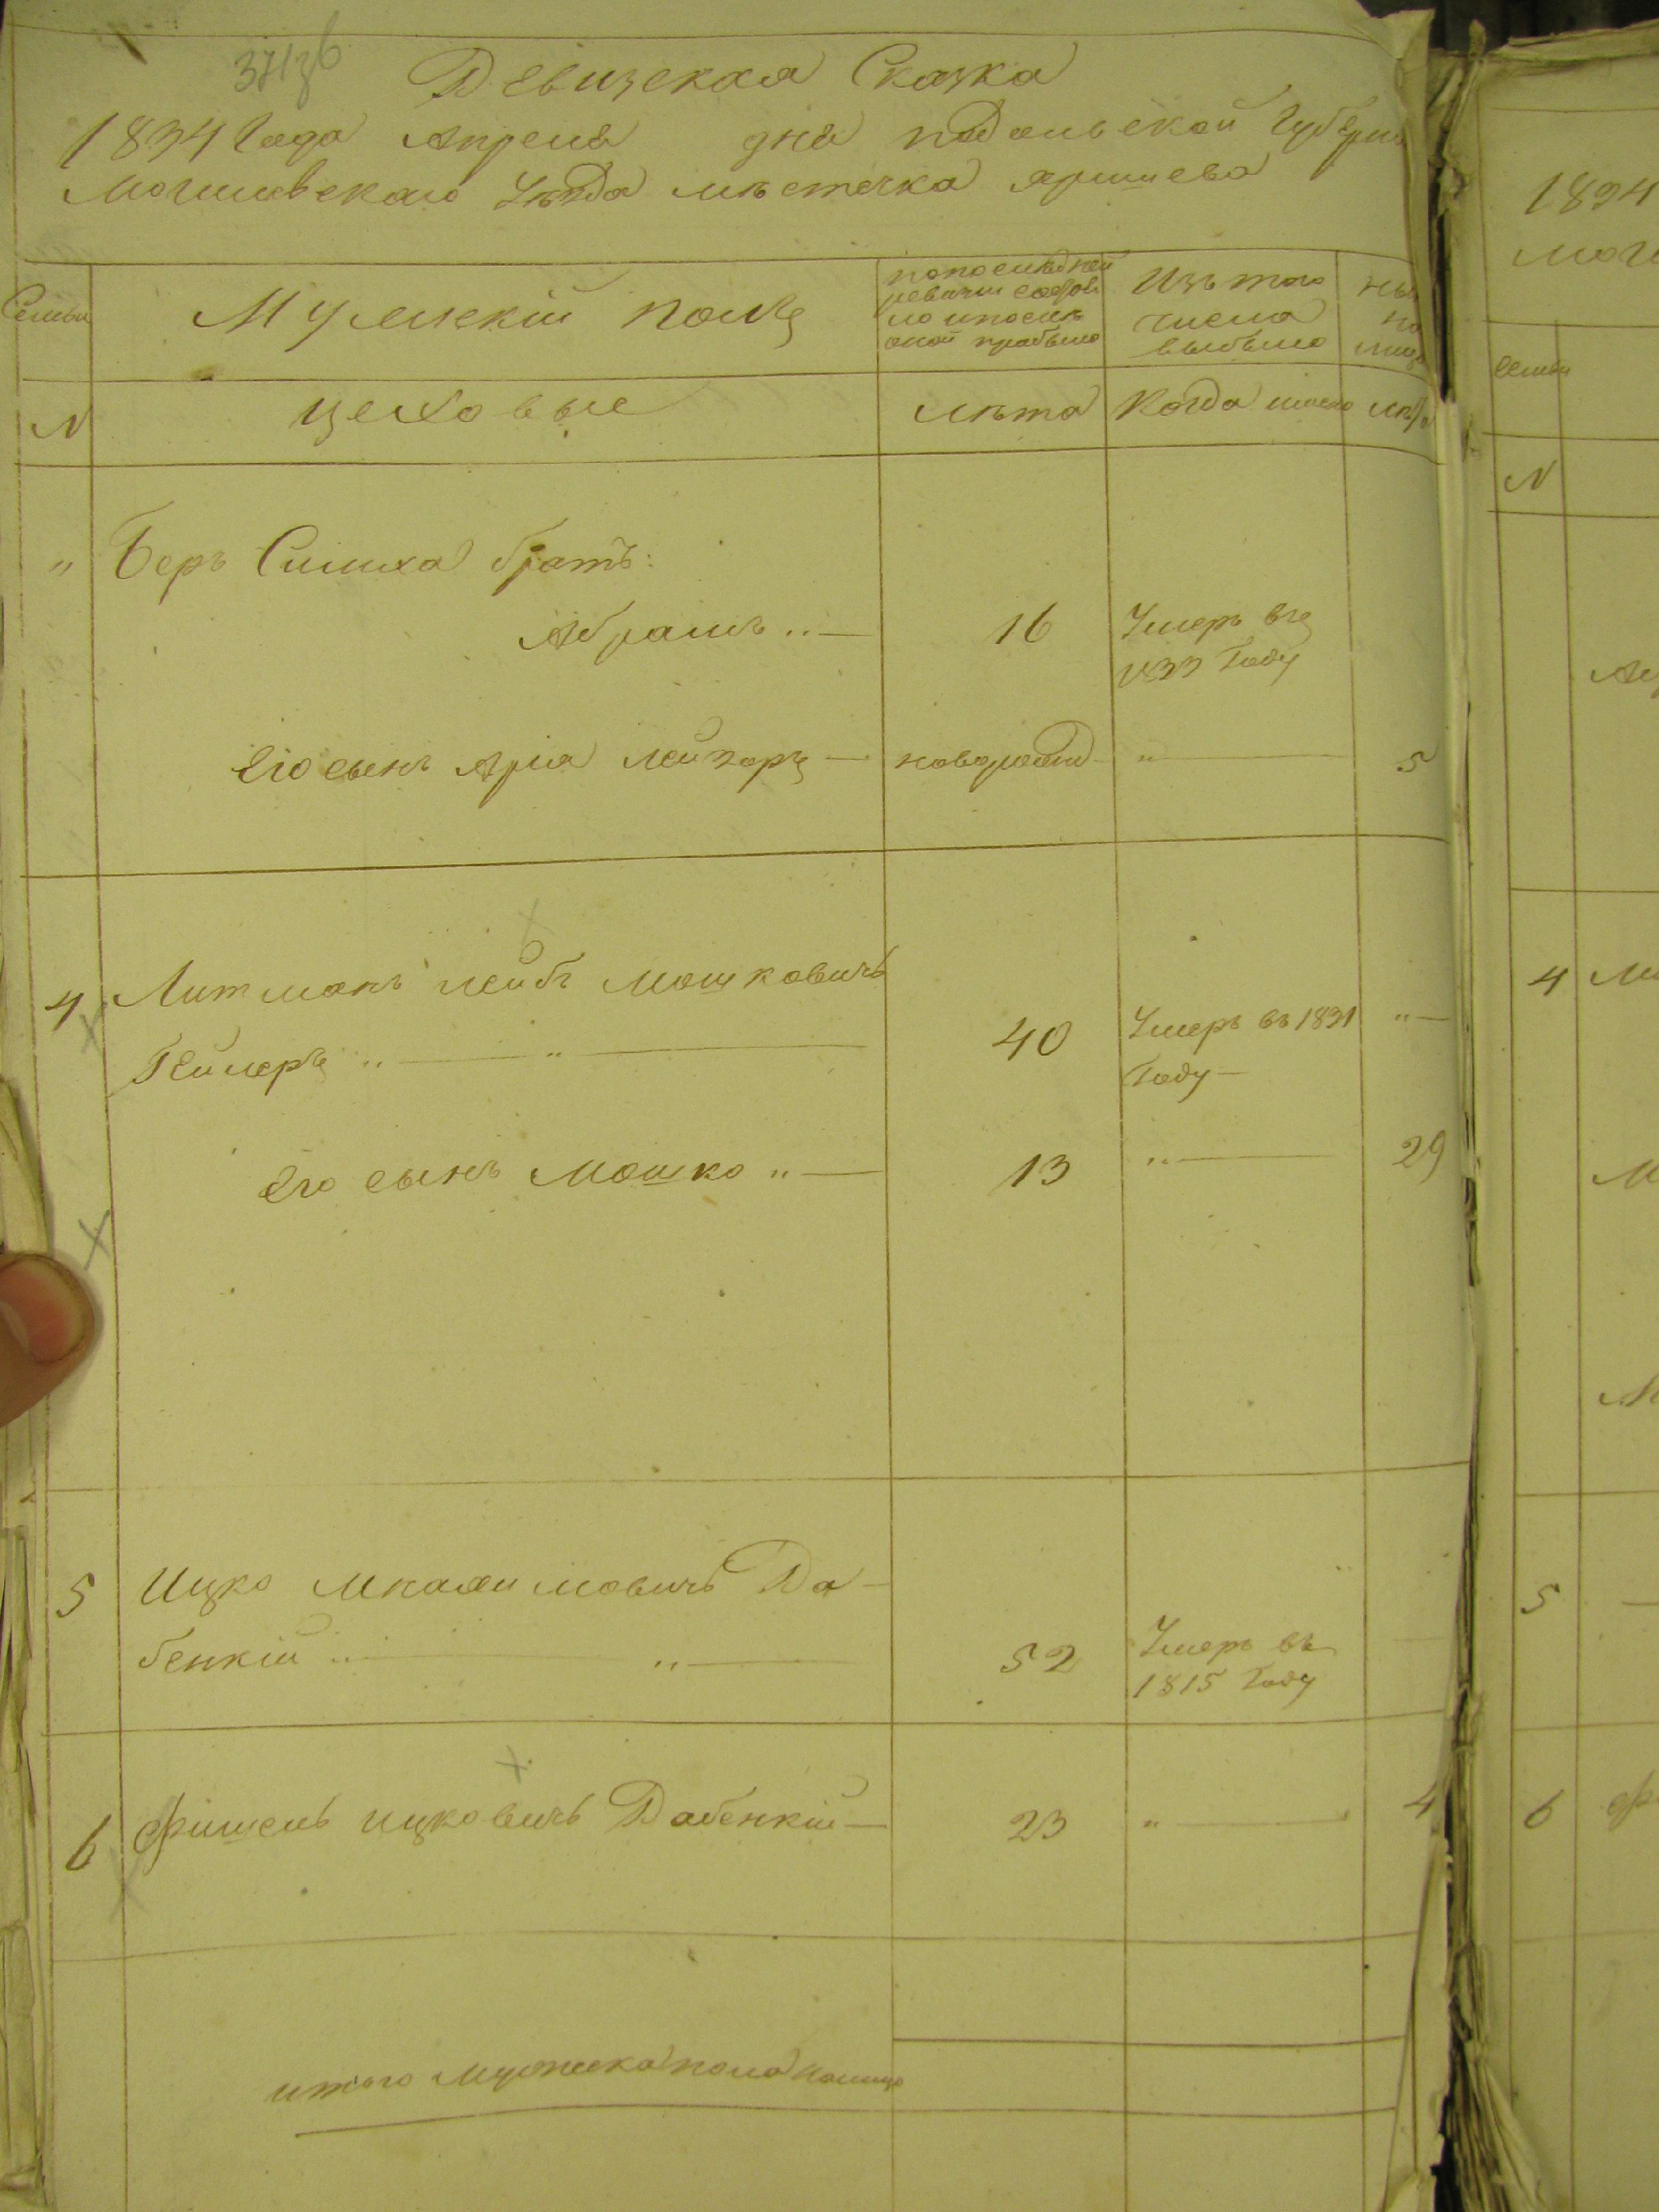 Ревизская Сказка
1834 Года Апреля дня Подольской Губерніи
Могилевскаго Уѣзда мѣстечка Яришева
Семьи
Мужескій полъ
по последней
ревизіи состоя
ло и после
оной прибыло
Изъ того
числа
выбыло
ны
на
лиц
N
цеховые
лѣта
Когда имено
лѣта
" Беръ Симха братъ:
Абрамъ 16 Умеръ въ
1833 Году
Его сынъ Аріа Лейзоръ новорожд " 5
4 Литманъ Лейбъ Мошковичъ
Гейлеръ " 40 Умеръ въ 1831 "
Году
Его сынъ Мошко " 13 " 29
5 Ицко Да-
бенкій " 52 Умеръ въ
1815 Году
6 Фишель Ицковичъ Дабенкій 23 " 4
итого Мужеска пола налицо
1834
Моги
Семьи
N
4 Ли
М
М
5
6 Фи